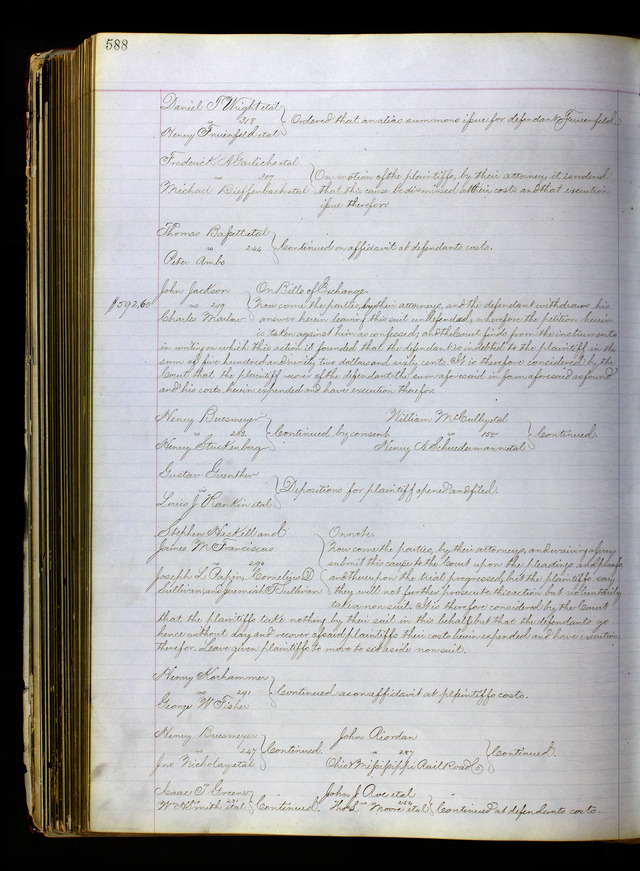 588
Daniel T Wright etal
vs 318 Ordered that an alias summons issue for defendant Fruenfeld.
Henry Fruenfeld etal
Frederick A Garlichs etal
vs 307 On motion of the plaintiffs, by their attorney, it is ordered
Michael Dieffenbach etal that this cause be dismissed at their costs and that execution
issue therefor.
Thomas Bassett etal
vs 244 Continued on affidavit at defendants costs.
Peter Ambs
John Jackson On Bills of Exchange.
$592.60 vs 259 Now come the parties, by their attorneys, and the defendant withdraws his
Charles Marlow answer herein leaving this suit undefended, wherefore the petition herein
is taken against him as confessed, and the court finds from the instruments
in writing on which this action is founded that the defendant is indebted to the plaintiff in the
sum of five hundred and ninety two dollars and sixty cents. It is therefore considered by the
Court that the plaintiff recover of the defendant the sum aforesaid in form aforesaid as found
and his costs herein expended and have execution therefor.
Henry Buesmeyer William McCully etal
vs 232 Continued by consent. vs 155 Continued.
Henry Stuckenberg Henry A Schuedermann etal
Gustav Guenther
vs Depositions for plaintiff opened and filed.
Louis J Rankin etal
Stephen Haskell and On note.
James M Franciscus Now come the parties, by their attorneys, and waiving a jury
vs 290 submit this cause to the Court upon the pleadings and proofs,
Joseph L Papin, Cornelius D and thereupon the trial progressed, but the plaintiffs say
Sullivan, and Jeremiah F Sullivan they will not further prosecute this action but voluntarily
take a non suit. It is therefore considered by the Court
that the plaintiffs take nothing by their suit in this behalf but that the defendants go
hence without day and recover of said plaintiffs their costs herein expended and have execution
therefor. Leave given plaintiffs to move to set aside non suit.
Henry Korhammer
vs 291 Continued as on affidavit at plaintiffs costs.
George W Fisher
Henry Buesmeyer John Riordan
vs 247 Continued. vs 287 Continued.
Jno Nicholay etal Ohio & Mississippi Rail Road Co
Isaac T Greene John J Roe etal
W H Smith etal Continued. Thos Moore etal 254 Continued at defendants costs.